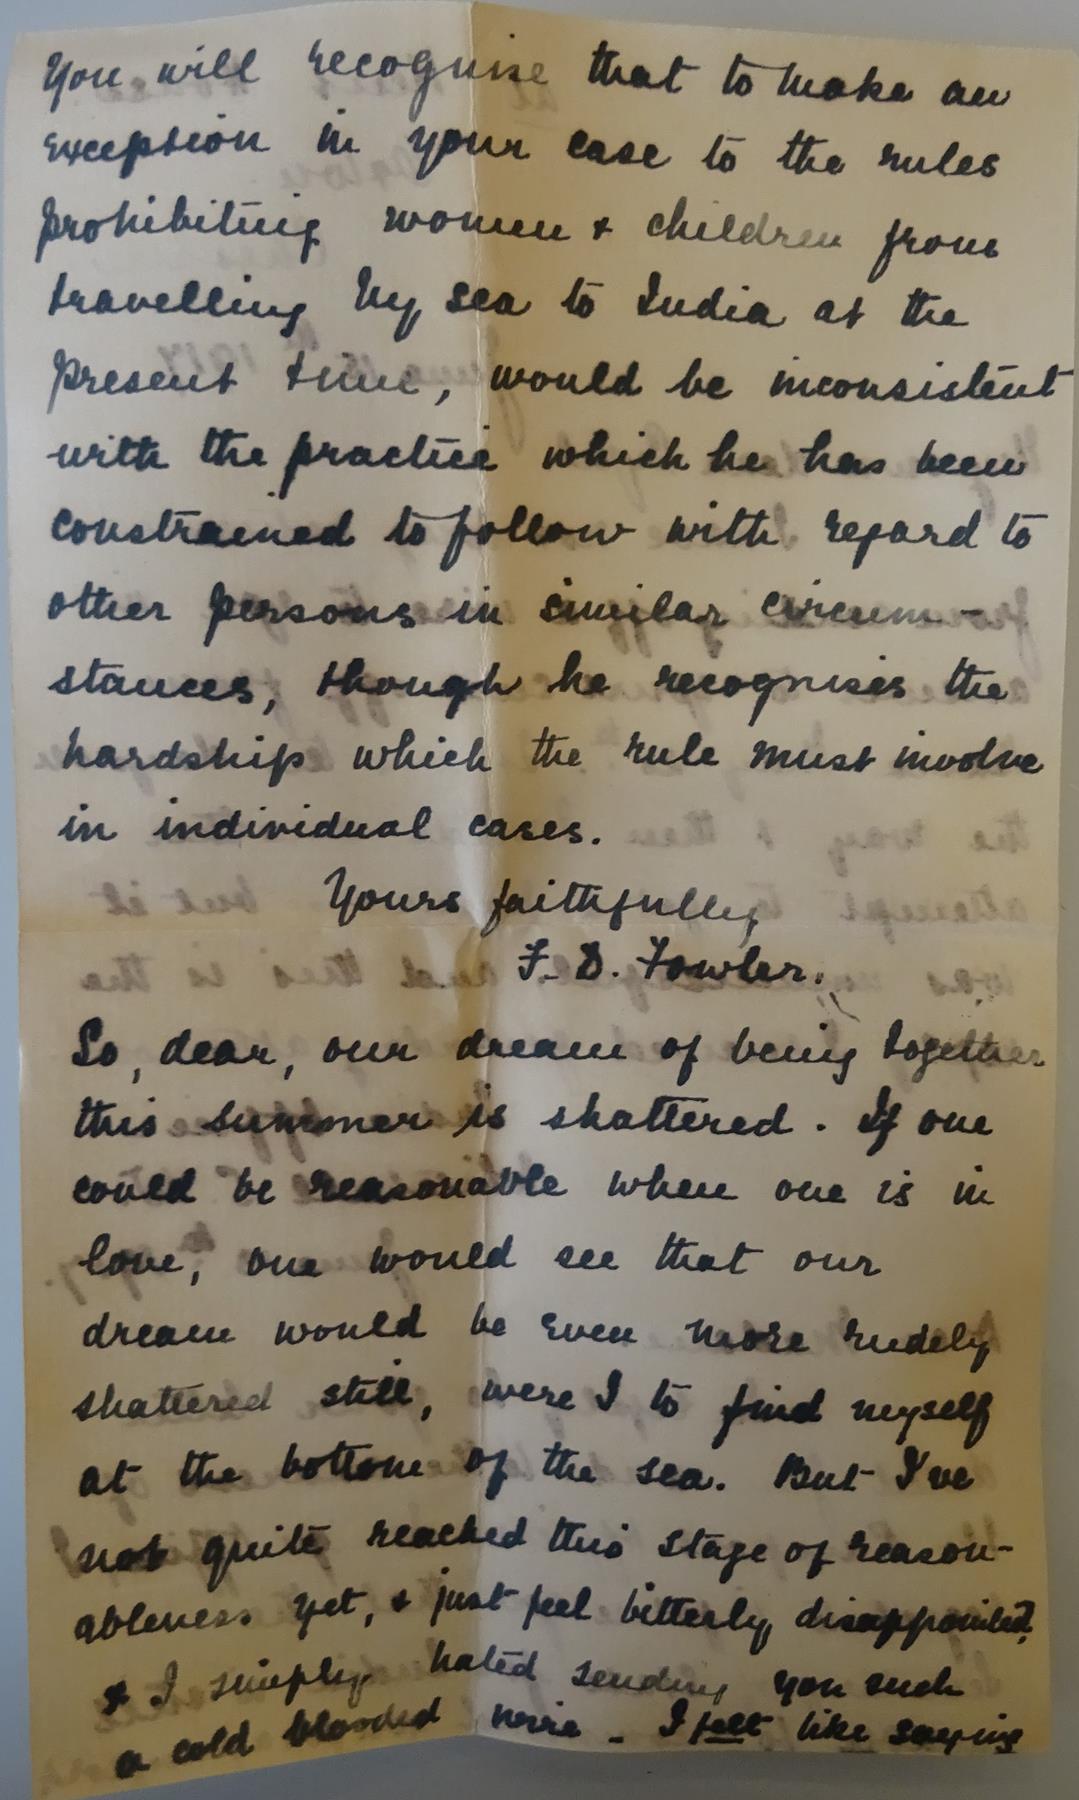 You will recognise that to make an
exception in your case to the rules
prohibiting women & children from
travelling by sea to India at the
present time, would be inconsistent
with the practice which he has been
constrained to follow with regard to
other persons in similar circum-
stances, though he recognises the
hardship which the rule must involve
in individual cases.
Yours faithfully,
F. D. Fowler.
So, dear, our dream of being together
this summer is shattered. If one
could be reasonable when one is in
love, one would see that our
dream would be even more rudely
shattered still, were I to find myself
at the bottom of the sea. But I've
not quite reached this stage of reason-
ableness yet, & just feel bitterly disappointed,
& I simply hated sending you such
a cold blooded wire - I felt like saying